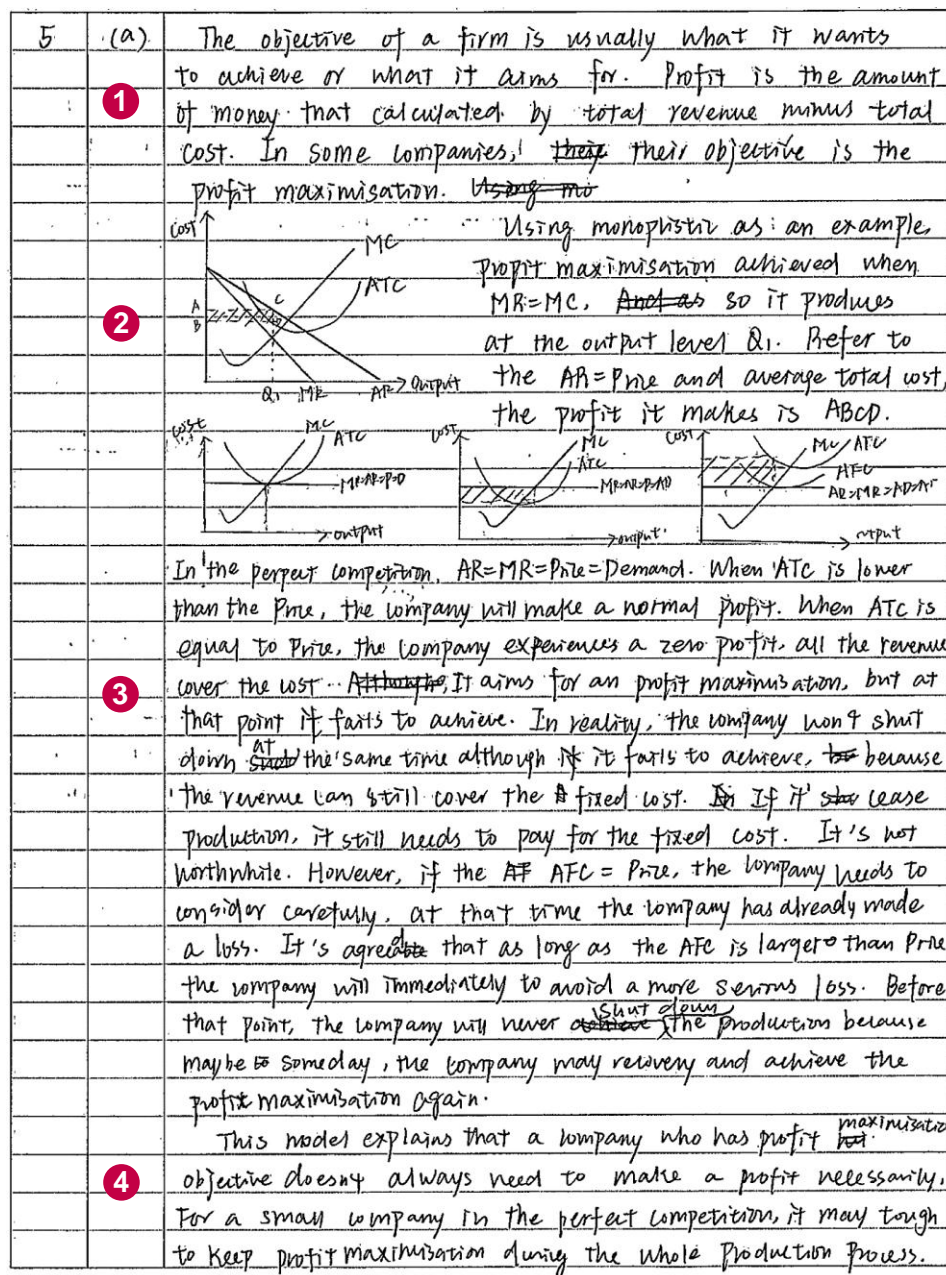 5 (a) The objective of a firm is usually what it wants
to achieve or what it aims for. Profit is the amount
1
of money that calculated by total revenue minus total
cost. In some companies, their their objective is the
profit maximisation. Using mo
Cost
MC
ATC
A
B
C
Q1 MR AR Output
Using monoplistic as an example,
profit maximisation achieved when
2
MR=MC, And as so it produces
at the output level Q1. Refer to
the AR=Price and average total cost,
the profit it makes is ABCD.
cost MC ATC
MR=AR=P=D
output
cost MC
ATC
MR=AR=P=AD
output
cost MC ATC
AFC
AR=MR=AD=
output
In the perfect competition, AR=MR=Price=Demand. When ATC is lower
than the Price, the company will make a normal profit. When ATC is
equal to Price, the company experiences a zero profit, all the revenue
3
cover the cost. Although, It aims for an profit maximisation, but at
that point it fails to achieve. In reality, the company won't shut
down at the same time although it fails to achieve, because
the revenue can still cover the fixed cost. If it cease
production, it still needs to pay for the fixed cost. It's not
worthwhile. However, if the AF AFC = Price, the company needs to
consider carefully, at that time the company has already made
a loss. It's agreed that as long as the AFC is larger than Price
the company will immediately to avoid a more serious loss. Before
that point, the company will never achieve shut down the production because
maybe someday, the company may recovery and achieve the
profit maximisation again.
This model explains that a company who has profit maximisation
4
objective doesn't always need to make a profit necessarily,
For a small company in the perfect competition, it may tough
to keep profit maximisation during the whole production process.